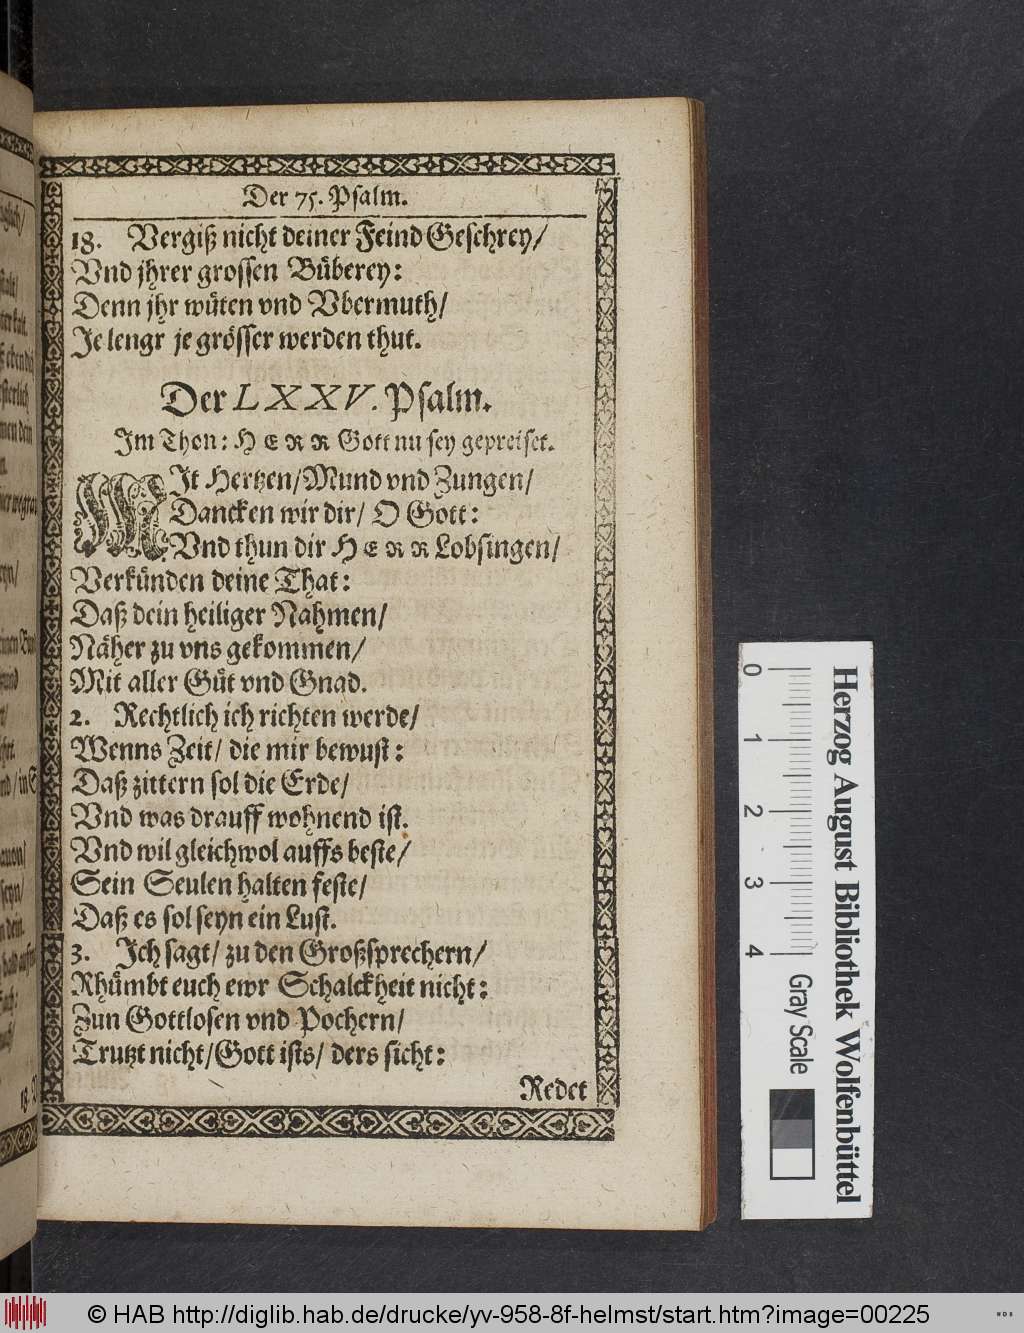 Der 75. Psalm.
18. Vergiß nicht deiner Feind Geschrey/
Vnd jhrer grossen Büberey:
Denn jhr wüten vnd Vbermuth/
Je lengr je grösser werden thut.
Der LXXV. Psalm.
Im Thon: HERR Gott nu sey gepreiset.
MIt Hertzen/Mund vnd Zungen/
Dancken wir dir/ O Gott:
Vnd thun dir HERR Lobsingen/
Verkünden deine That:
Daß dein heiliger Nahmen/
Näher zu vns gekommen/
Mit aller Güt vnd Gnad.
2. Rechtlich ich richten werde/
Wenns Zeit/ die mir bewust:
Daß zittern sol die Erde/
Vnd was drauff wohnend ist.
Vnd wil gleichwol auffs beste/
Sein Seulen halten feste/
Daß es sol seyn ein Lust.
3. Ich sagt/ zu den Großsprechern/
Rhümbt euch ewr Schalckheit nicht:
Zun Gottlosen vnd Pochern/
Trutzt nicht/Gott ists/ ders sicht:
Redet
0 1 2 3 4 Gray Scale
Herzog August Bibliothek Wolfenbüttel
© HAB http://diglib.hab.de/drucke/yv-958-8f-helmst/start.htm?image=00225